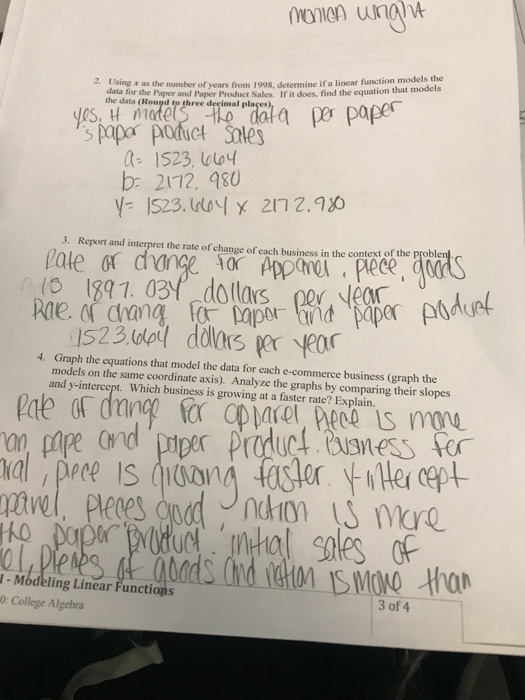 monica wright
2. Using x as the number of years from 1998, determine if a linear function models the
data for the Paper and Paper Product Sales. If it does, find the equation that models
the data (Round to three decimal places).
yes, it models the data per paper
s paper product sales
a= 1523.664
b= 2172.980
y= 1523.664 x 2172.980
3. Report and interpret the rate of change of each business in the context of the problem.
Rate of change for Apparel, piece, goods
is 1897.034 dollars per year
Rate of chang For paper and paper product
1523.664 dollars per year
4. Graph the equations that model the data for each e-commerce business (graph the
models on the same coordinate axis). Analyze the graphs by comparing their slopes
and y-intercept. Which business is growing at a faster rate? Explain.
Rate of change for apparel piece is more
han pape and paper product. Busness for
aral, piece is growing faster. y-intercept
aparel, pieces good notion is more
the paper product. initial sales of
el, pieces of goods and notion is more than
1 - Modeling Linear Functions
0: College Algebra
3 of 4